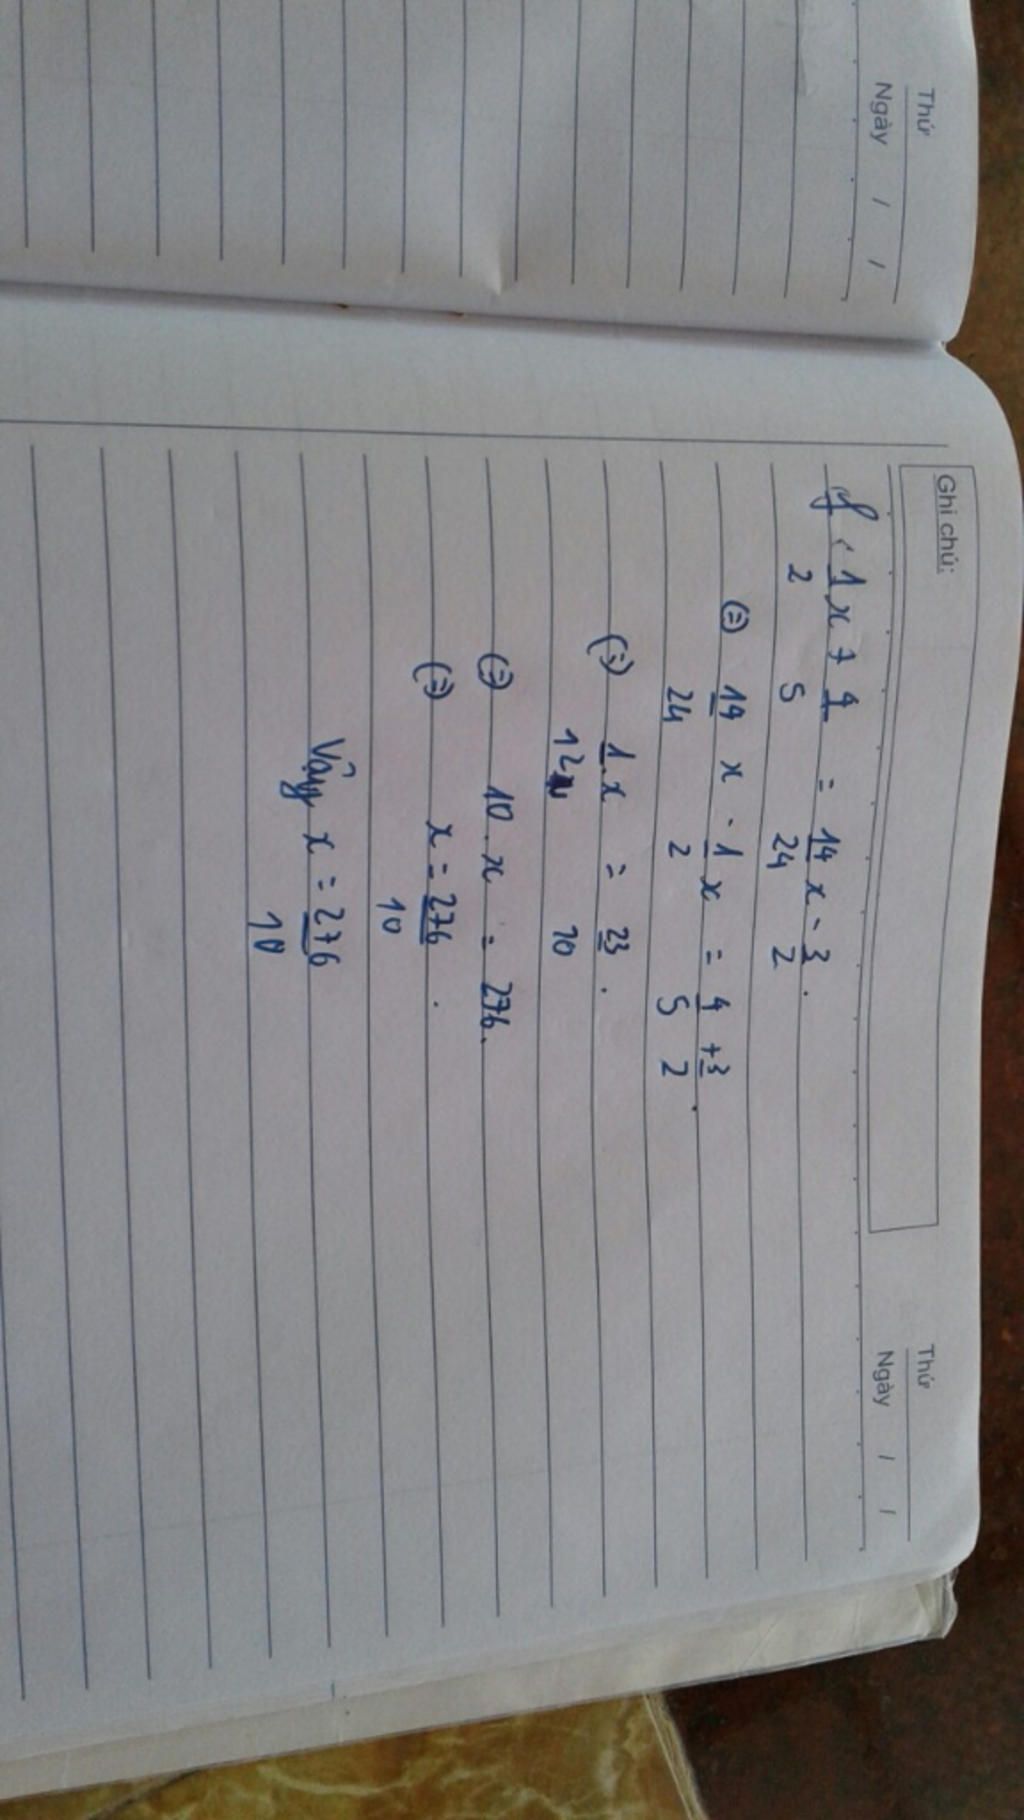 Thứ
Ngày / /
Ghi chú:
Thứ
Ngày / /
f, 1/2 x + 4/5 = 14/24 x - 3/2.
(=) 14/24 x - 1/2 x = 4/5 + 3/2.
(=) 1/12 . x = 23/10.
(=) 10 . x = 276.
(=) x = 276/10.
Vậy x = 276/10